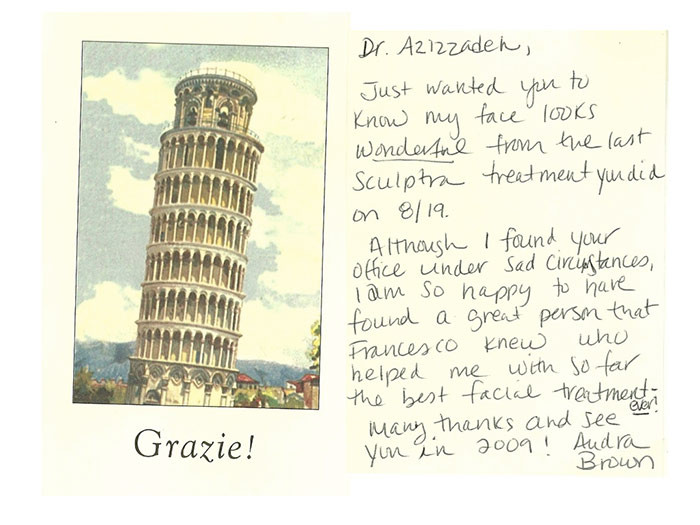 Grazie!
Dr. Azizzadeh,
Just wanted you to
know my face looks
wonderful from the last
Sculptra treatment you did
on 8/19.
Although I found your
office under sad circumstances,
I am so happy to have
found a great person that
Francesco knew who
helped me with so far
the best facial treatment-
ever!
Many thanks and see
you in 2009! Audra
Brown